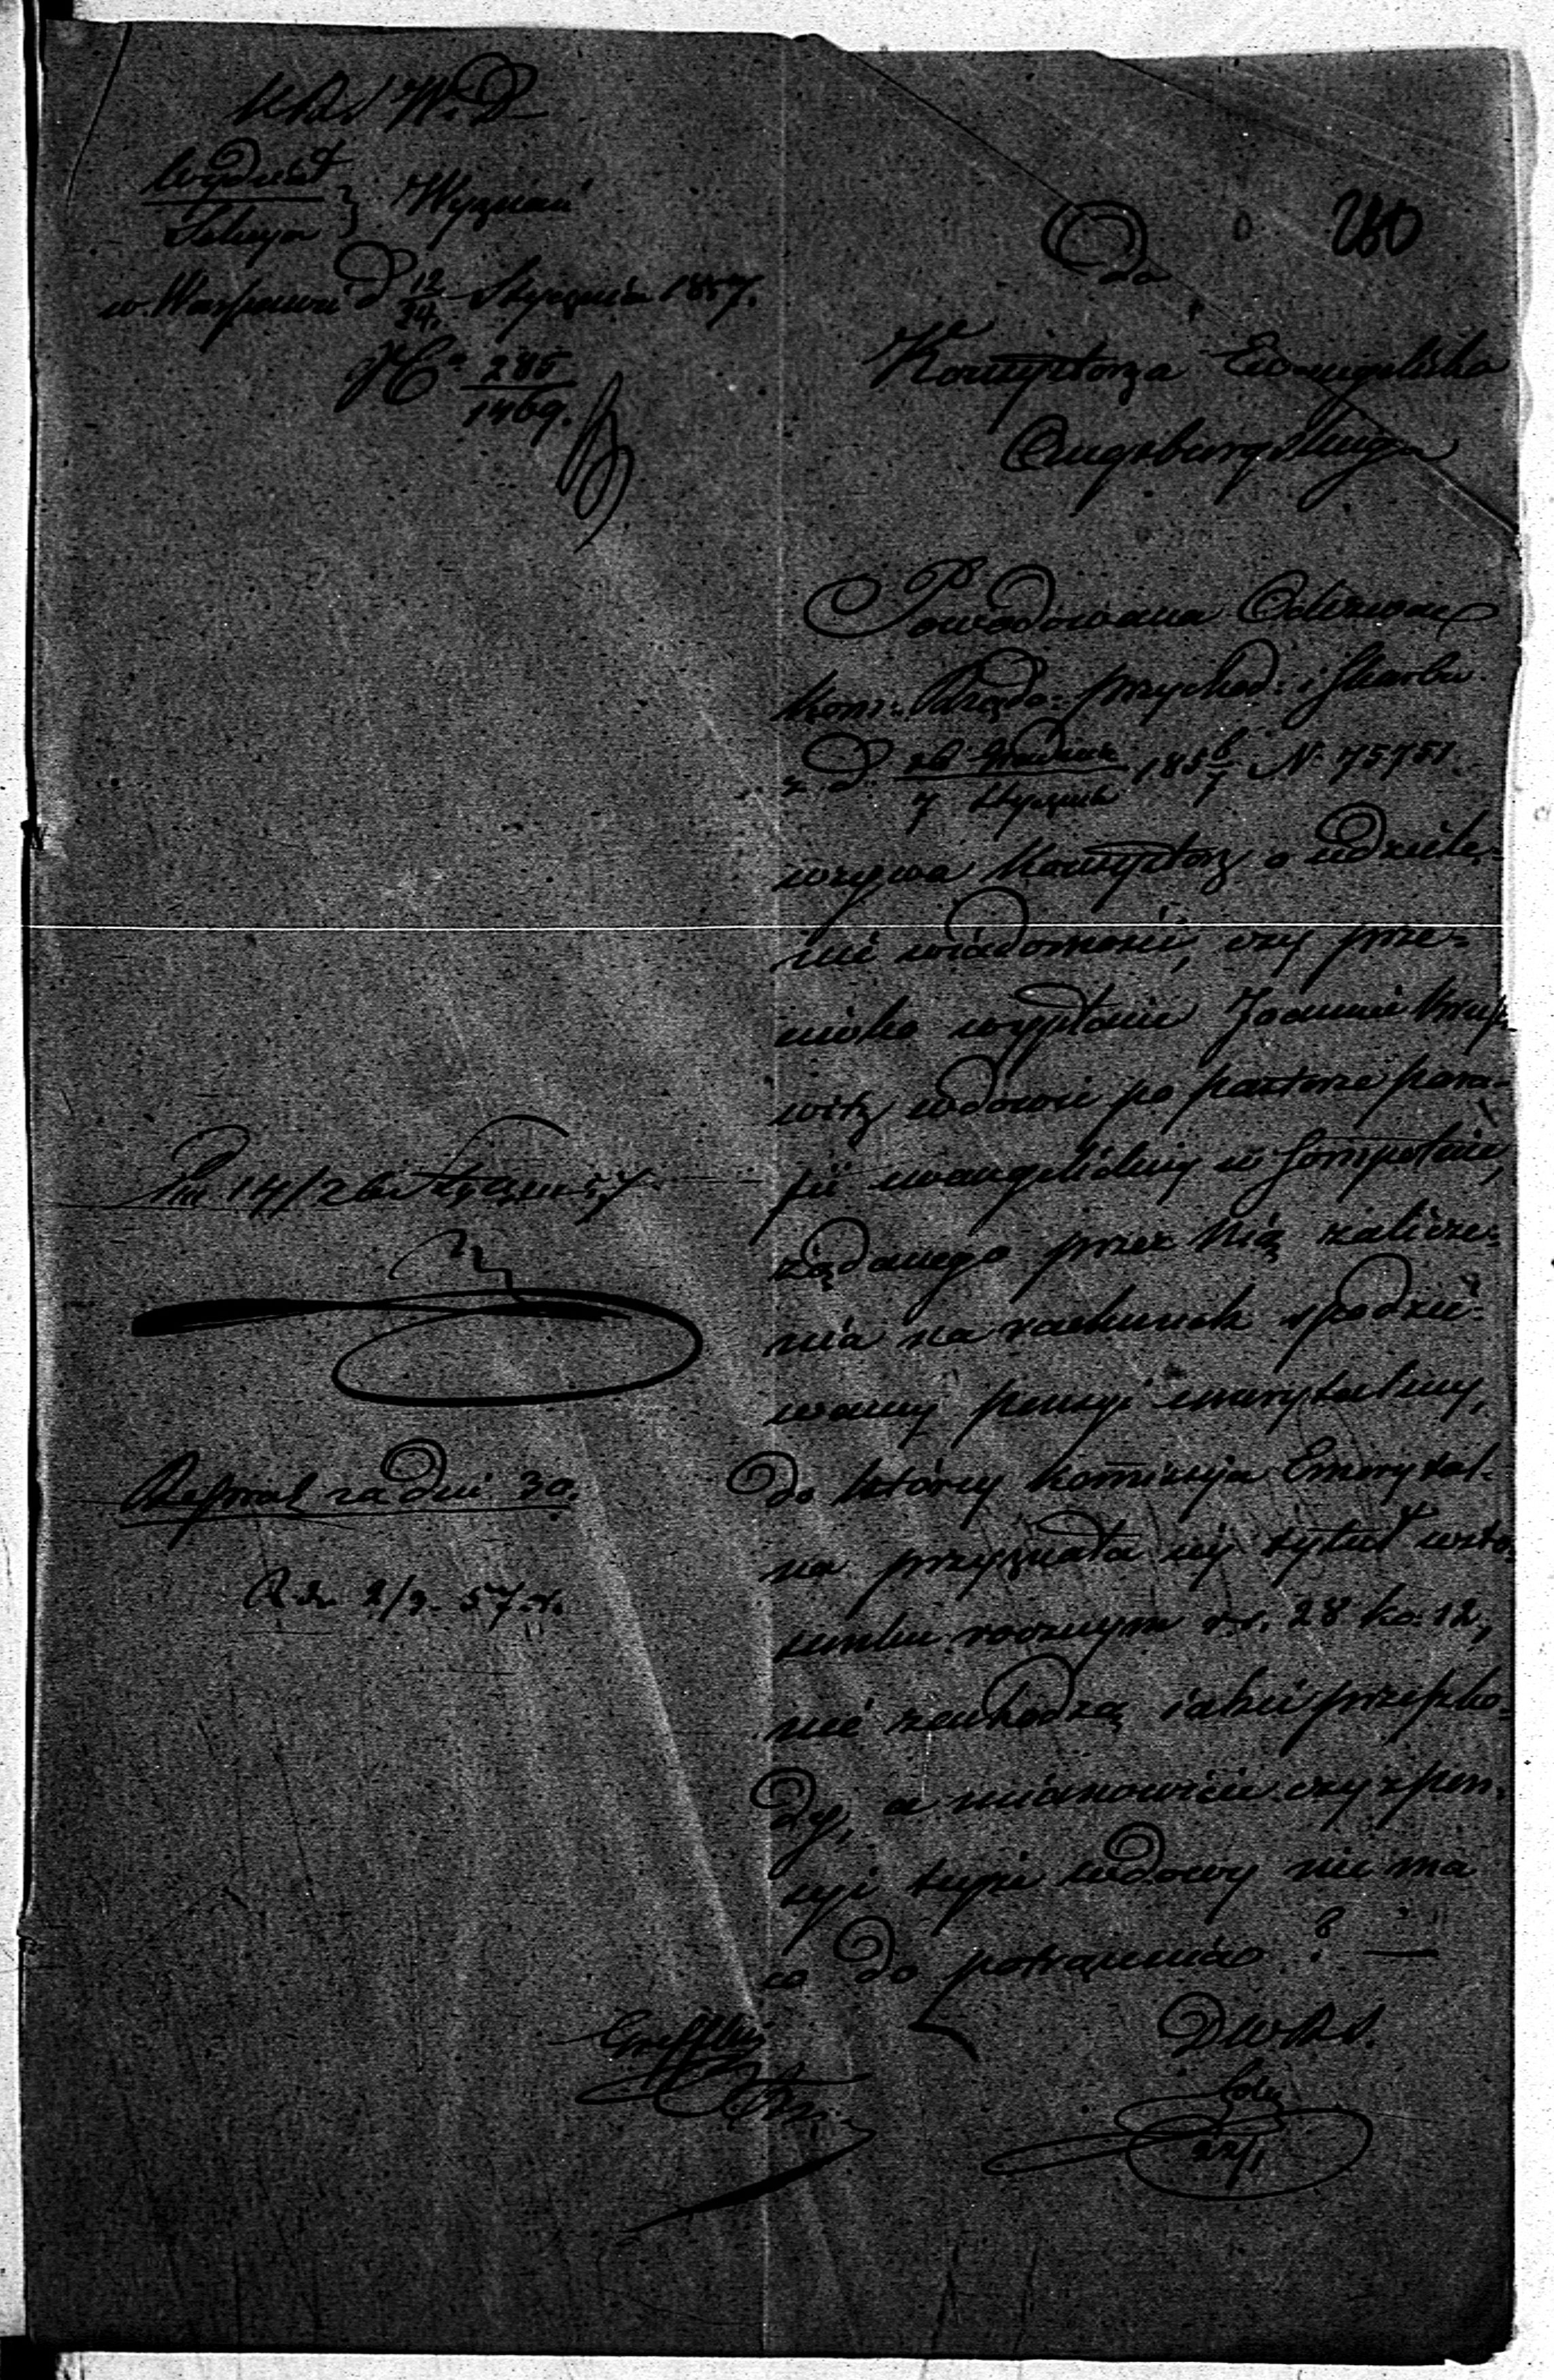 KRSW. D.
Wydział
Sekcja } Wyznań
w Warszawie d 12/24 Stycznia 1857.
No 286/1469.
280
Do
Konsystorza Ewangelicko
Augsburgskiego
Powodowana Odezwą
Kom: Rządo: Przychod: i Skarbu
z d. 26 Grudnia / 7 Stycznia 1856/7 N. 75751.
wzywa Konsystorz o udziele-
nie wiadomości, czy prze-
ciwko wypłacie Joannie
wdowie po pastorze para-
fii ewangelickiej w Sompolnie,
żądanego przez nią zalicze-
nia na rachunek spodzie-
wanej pensyi emerytalnej,
do której Kommissyja Emerytal-
na przyznała jej tytuł w sto-
sunku rocznym r.s. 28 ko. 12,
nie zachodzą jakie przeszko-
dy, a mianowicie czy z pen-
syi tejże wdowy nie ma
co do potrącenia? —
14/26 Stycznia 57
za dni 30.
2/9. 57. r.
D W R S.
22/1